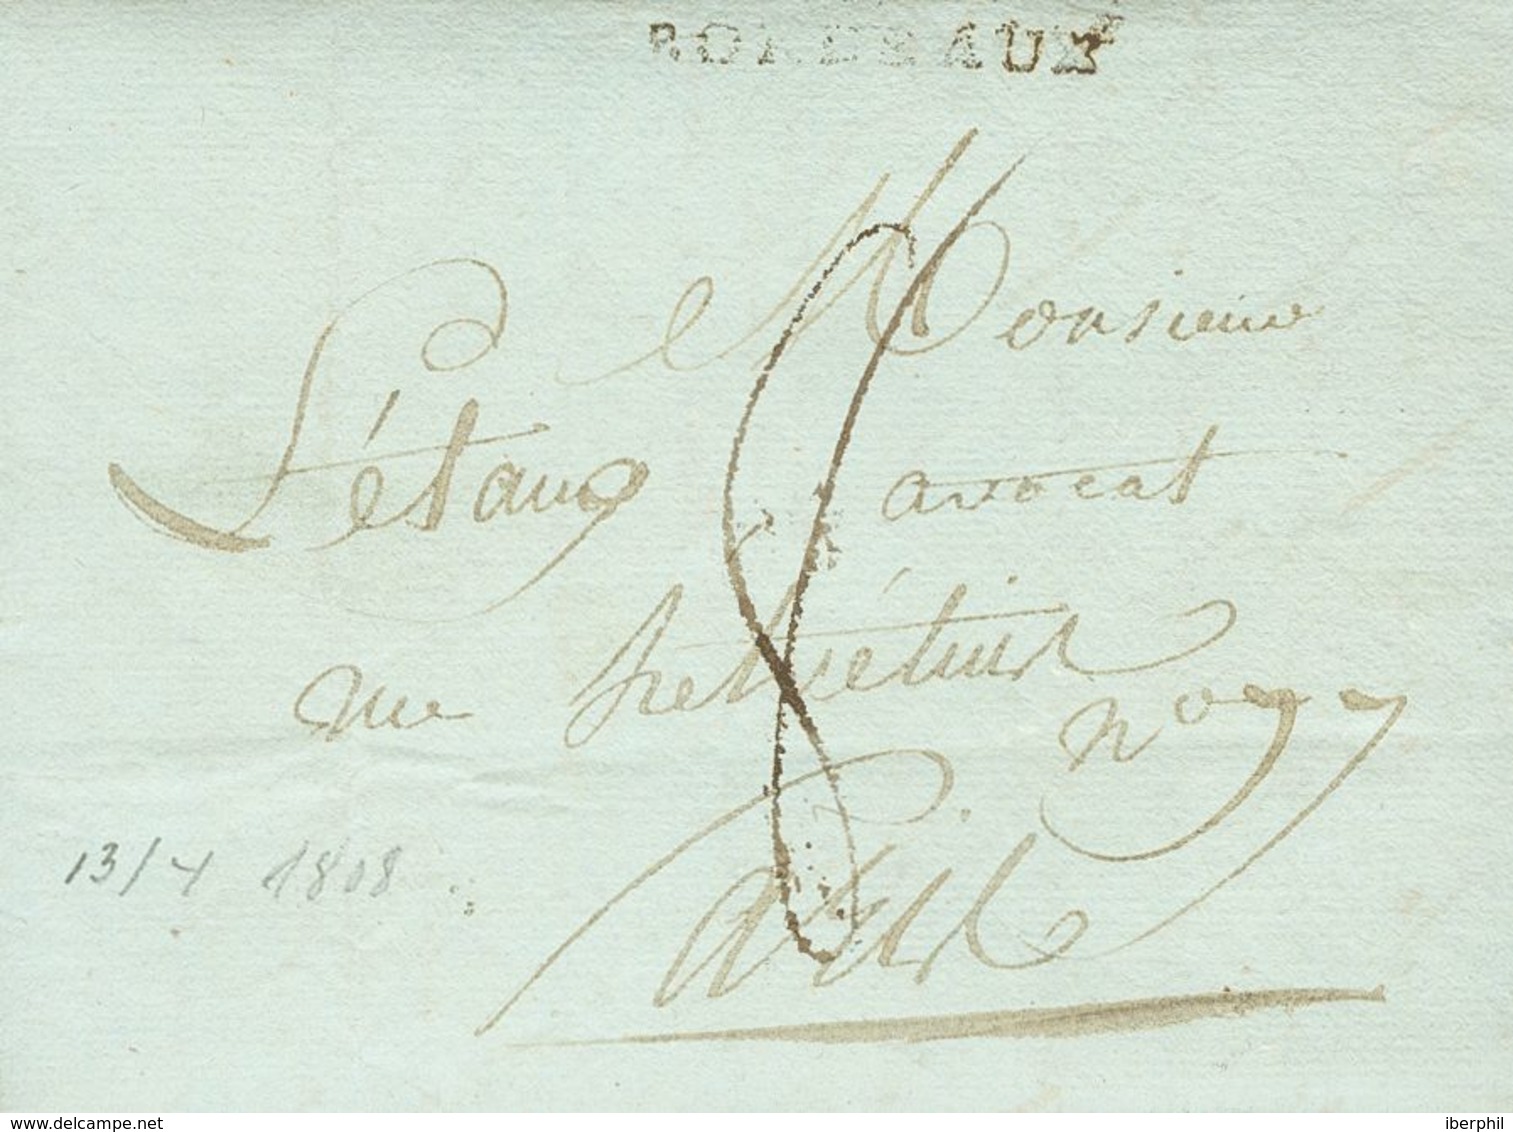 BORDEAUX
Monsieur
L'étang avocat
rue
n° 77
Paris
8
13/4 1808
delcampe.net
iberphil